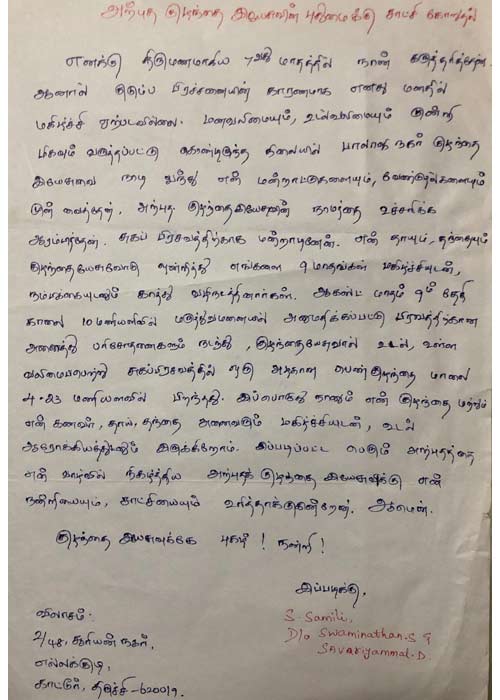 அற்புத குழந்தை இயேசுவின் புதுமைக்கு காட்சி கோருதல்
எனக்கு திருமணமாகிய 7வது மாதத்தில் நான் கருத்தரித்தேன்.
ஆனால் குடும்ப பிரச்சனையின் காரணமாக எனது மனதில்
மகிழ்ச்சி ஏற்படவில்லை. மனவலிமையும், உடல்வலிமையும் குன்றி
மிகவும் வருத்தப்பட்டு கொண்டிருந்த நிலையில் பாலாஜி நகர் குழந்தை
இயேசுவை நாடி வந்து என் மன்றாட்டுகளையும், வேண்டுதல்களையும்
முன் வைத்தேன். அற்புத குழந்தைஇயேசுவின் நாமத்தை உச்சரிக்க
ஆரம்பித்தேன். சுகப் பிரசவத்திற்காக மன்றாடினேன். என் தாயும், தந்தையும்
குழந்தையேசுவோடு ஒன்றித்து எங்களை 9 மாதங்கள் மகிழ்ச்சியுடன்,
நம்பிக்கையுடனும் காத்து வழிநடத்தினார்கள். ஆகஸ்ட் மாதம் 9ம் தேதி
காலை 10 மணியளவில் மருத்துவமனையில் அனுமதிக்கப்பட்டு பிரவத்திற்கான
அனைத்து பரிசோதனைகளும் நடந்து, குழந்தையேசுவால் உடல், உள்ள
வலிமைபெற்று சுகப்பிரசவத்தில் ஒரு அழகான பெண் குழந்தை மாலை
4.23 மணியளவில் பிறந்தது. இப்பொழுது நானும் என் குழந்தை மற்றும்
என் கணவர், தாய், தந்தை அனைவரும் மகிழ்ச்சியுடன், உடல்
ஆரோக்கியத்துடனும் இருக்கிறோம். இப்படிப்பட்ட பெரும் அற்புதத்தை
என் வாழ்வில் நிகழ்த்திய அற்புதக் குழந்தை இயேசுவிக்கு என்
நன்றியையும், காட்சியையும் உரித்தாக்குகின்றேன். ஆமென்.
குழந்தை இயேசுவுக்கே புகழ்! நன்றி!
இப்படிக்கு,
S. Samili,
D/o Swaminathan.S &
Savariyammal.D.
விலாசம்:
2/48, சூரியன் நகர்,
எல்லக்குடி,
காட்டூர், திருச்சி-620019.